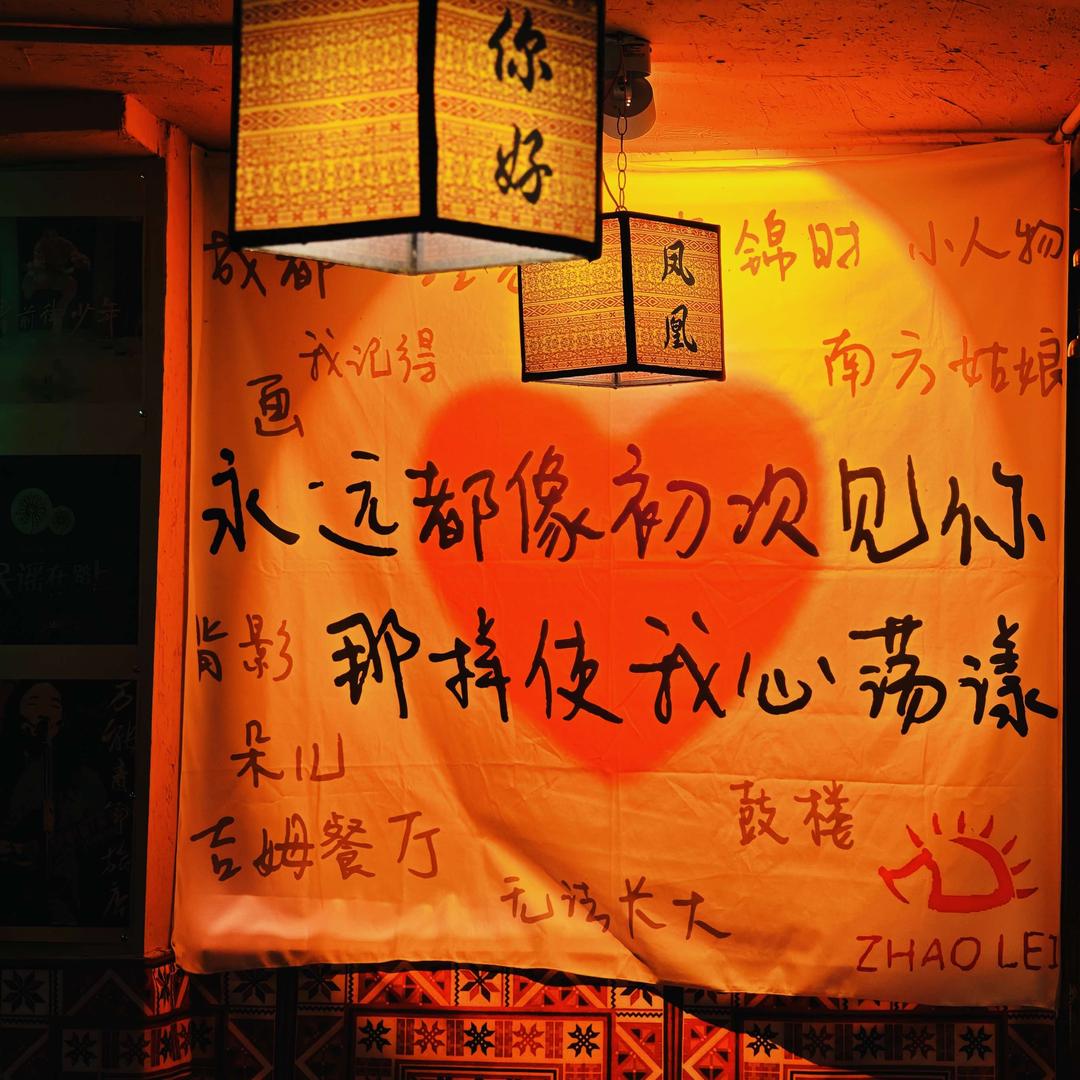 你好
凤凰
成都
锦时 小人物
我记得
南方姑娘
画
永远都像初次见你
那样使我心荡漾
背影
朵儿
吉姆餐厅
鼓楼
无法长大
ZHAO LEI
少年
民谣在路上
万能青年旅店